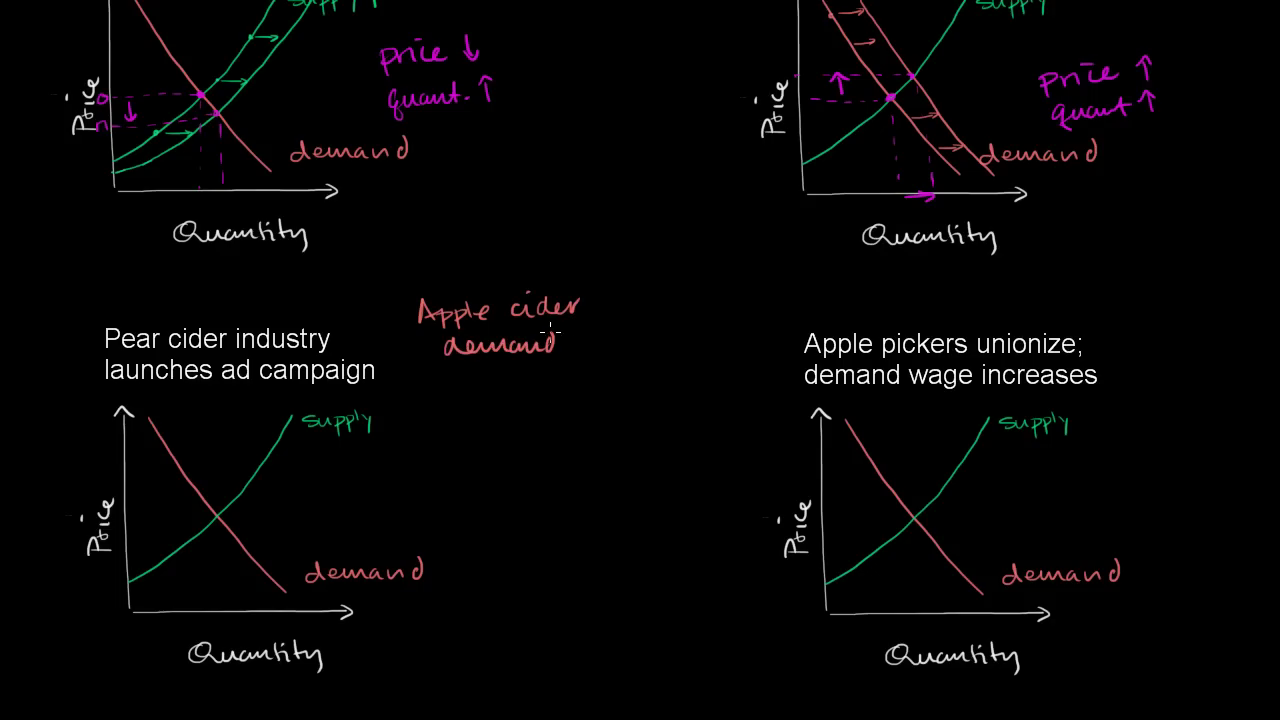 supply
price ↓
quant. ↑
Price
o
n
demand
Quantity
supply
price ↑
quant ↑
Price
demand
Quantity
Pear cider industry
launches ad campaign
Apple cider
demand
supply
Price
demand
Quantity
Apple pickers unionize;
demand wage increases
supply
Price
demand
Quantity